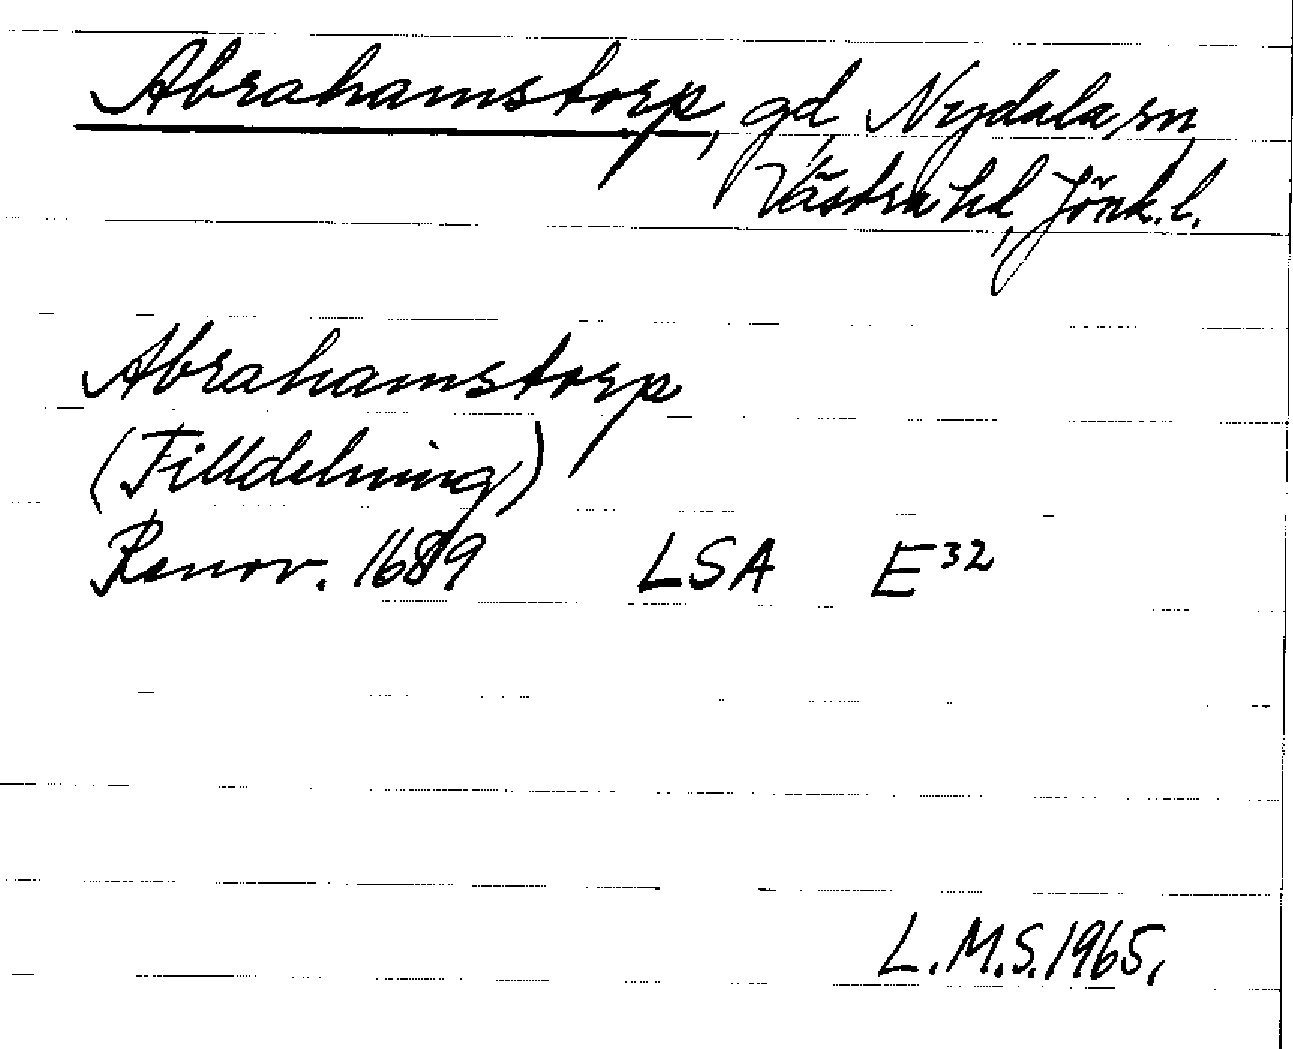 Abrahamstorp, gd, Nydala sn,
Västra hd, Jönk. l.
Abrahamstorp
(Filldelning)
Renov. 1689 LSA E32
L.M.S. 1965.